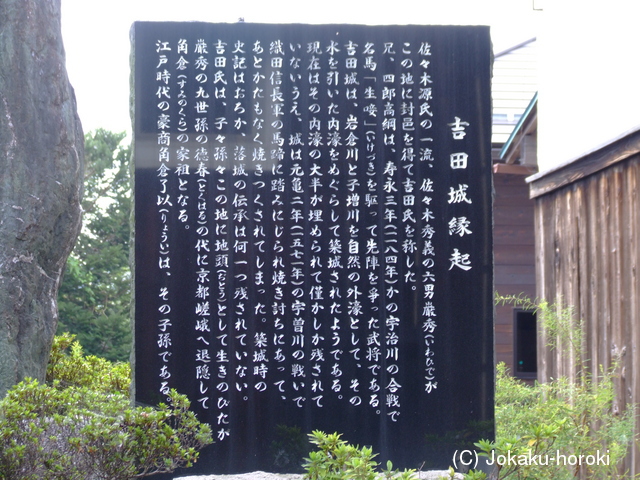 吉田城縁起
佐々木源氏の一流、佐々木秀義の六男厳秀(いわひで)が
この地に封邑を得て吉田氏を称した。
兄、四郎高綱は、寿永三年(一一八四年)かの宇治川の合戦で
名馬「生唼」(いけづき)を駆って先陣を争った武将である。
吉田城は、岩倉川と子増川を自然の外濠として、その
水を引いた内濠をめぐらして築城されたようである。
現在はその内濠の大半が埋められて僅かしか残されて
いないうえ、城は元亀二年(一五七一年)の宇曽川の戦いで
織田信長軍の馬蹄に踏みにじられ焼き討ちにあって、
あとかたもなく焼きつくされてしまった。築城時の
史記はおろか、落城の伝承は何一つ残されていない。
吉田氏は、子々孫々この地に地頭(なとう)として生きのびたが
厳秀の九世孫の徳春(とくはる)の代に京都嵯峨へ退隠して
角倉(すみのくら)の家祖となる。
江戸時代の豪商角倉了以(りょうい)は、その子孫である。
(C) Jokaku-horoki